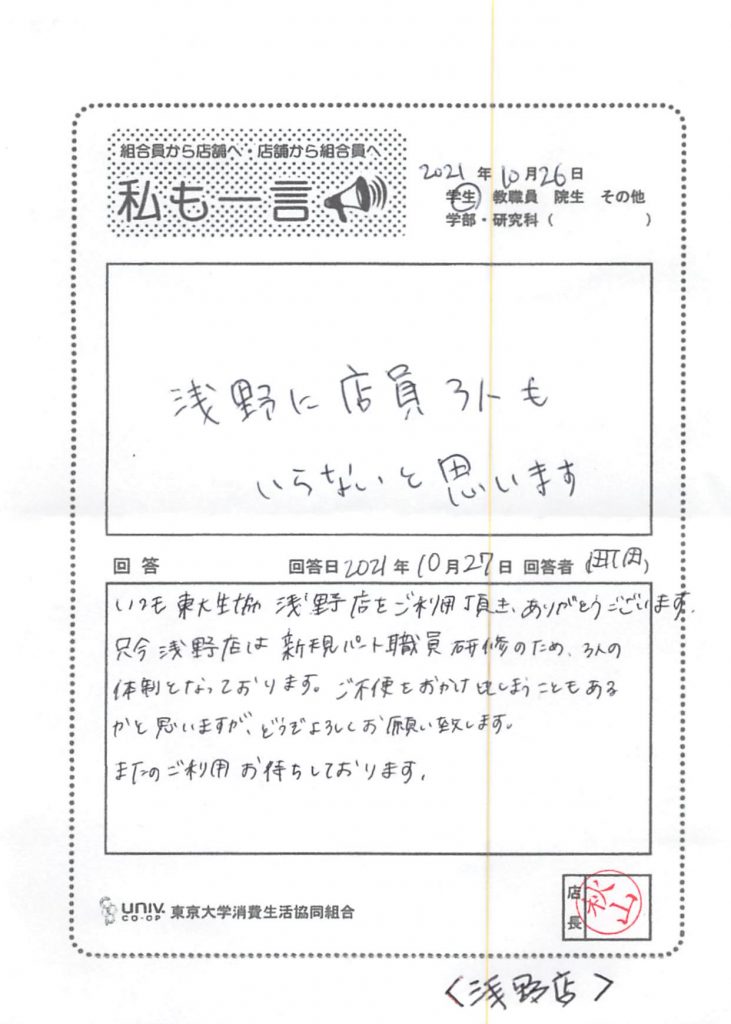 組合員から店舗へ・店舗から組合員へ
私も一言
2021年10月26日
学生 教職員 院生 その他
学部・研究科（ ）
浅野に店員3人も
いらないと思います
回答 回答日2021年10月27日 回答者（町田）
いつも東大生協 浅野店をご利用頂き、ありがとうございます。
只今浅野店は新規パート職員研修のため、3人の
体制となっております。ご不便をおかけしてしまうこともある
かと思いますが、どうぞよろしくお願い致します。
またのご利用お待ちしております。
UNIV.
CO-OP 東京大学消費生活協同組合
店長
秋山
＜浅野店＞